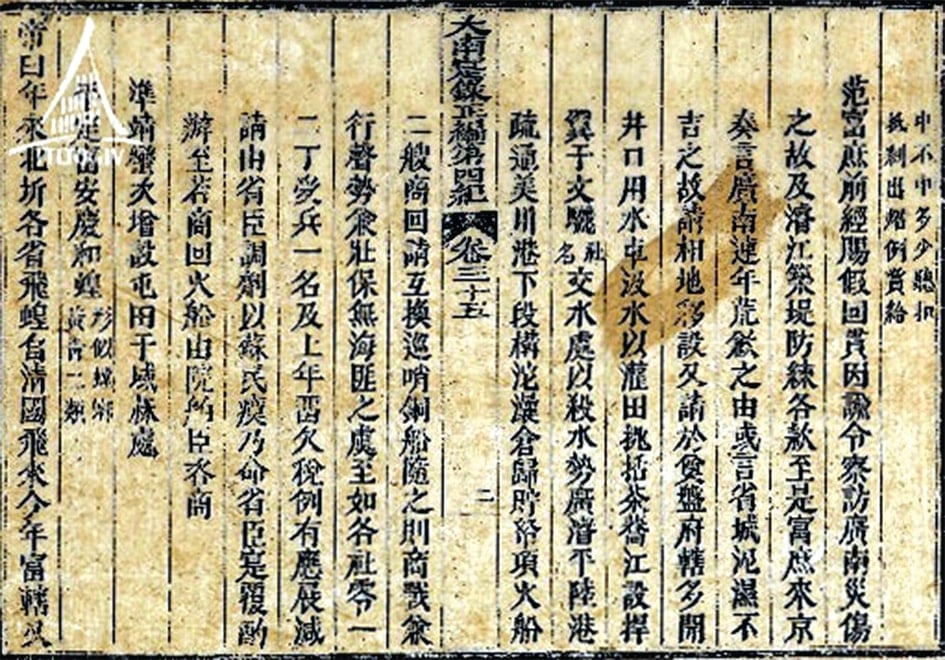 中不中多少聽扣
出照例賞給
范富庶前經賜假回貫因諭令察訪廣南災傷
之故及濬江築堤防練各款至是富庶來京
奏言廣南連年荒歉之由或言省城泥濕不
吉之故請相地移設又請於奠盤府轄多開
井口用水車汲水以灌田挑括茶江設捍
翼于文驪社名交水處以殺水勢廣濬平陸港
疏通美川港下段構沱灢倉歸貯帑項火船
大南寔錄正編第四紀 卷三十五 二
二艘商回請互換巡哨銅船隨之則商戰兼
行聲勢兼壯保無海匪之虞至如各社零一
二丁受兵一名及上年欠稅例有應展減
請由省臣調劑以蘇民瘼乃命省臣寔覆酌
辦至若商回火船由院舶臣咨商
準靖蠻次增設屯田于盛林處
平定富安慶和蝗形似黃青二類
帝曰年來北圻各省飛蝗自清國飛來今年富轄